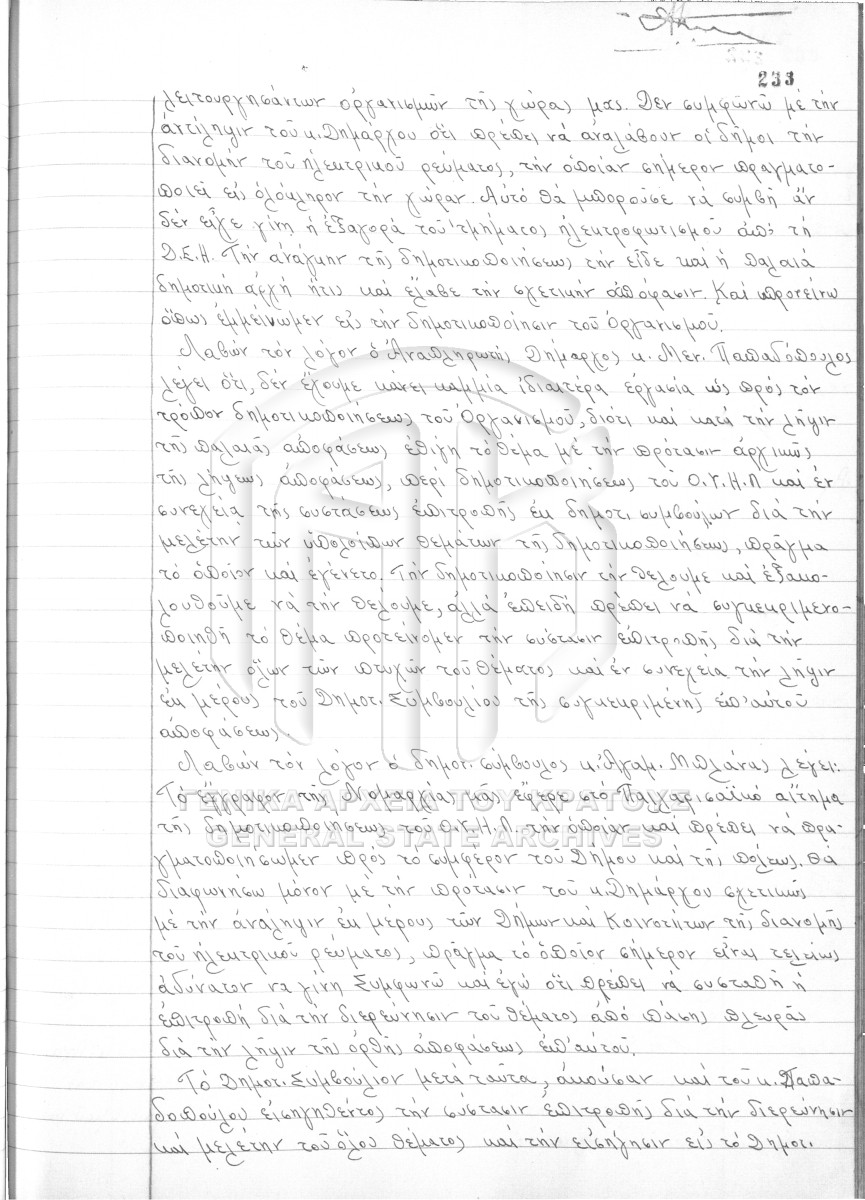 233
λειτουργησάντων ὀργανισμῶν τῆς χώρας μας. Δεν συμφωνῶ μέ τήν
ἀντίληψιν τοῦ κ. Δημάρχου ὅτι πρέπει νά ἀναλάβουν οἱ δῆμοι τήν
διανομήν τοῦ ἠλεκτρικοῦ ρεύματος, τήν ὁποίαν σήμερον πραγματο-
ποιεῖ εἰς ὁλόκληρον τήν χώραν. Αὐτό θά μποροῦσε νά συμβῆ ἄν
δέν εἶχε γίνη ἡ ἐξαγορά τοῦ τμήματος ἠλεκτροφωτισμοῦ ἀπό τή
Δ.Ε.Η. Τήν ἀνάγκην τῆς δημοτικοποιήσεως τήν εἶδε καί ἡ παλαιά
δημοτική ἀρχή ἥτις καί ἔλαβε τήν σχετικήν ἀπόφασιν. Καί προτείνω
ὅπως ἐμμείνωμεν εἰς τήν δημοτικοποίησιν τοῦ Ὀργανισμοῦ.
Λαβών τόν λόγον ὁ Ἀναπληρωτής Δήμαρχος κ. Μεν. Παπαδόπουλος
λέγει ὅτι, δέν ἔχουμε κάνει καμμία ἰδιαιτέρα ἐργασία ὡς πρός τόν
τρόπον δημοτικοποιήσεως τοῦ Ὀργανισμοῦ, διότι καί κατά τήν λῆψιν
τῆς παλαιᾶς ἀποφάσεως ἐθίγη τό θέμα μέ τήν πρότασιν ἀρχικῶς
τῆς λήψεως ἀποφάσεως, περί δημοτικοποιήσεως τοῦ Ο.Υ.Η.Λ καί ἐν
συνεχεία τῆς συστάσεως ἐπιτροπῆς ἐκ δημοτι συμβούλων διά τήν
μελέτην τῶν ὑπολοίπων θεμάτων τῆς δημοτικοποιήσεως, πρᾶγμα
τό ὁποῖον καί ἐγένετο. Τήν δημοτικοποίησιν τήν θέλουμε καί ἐξακο-
λουθοῦμε νά τήν θέλουμε, ἀλλά ἐπειδή πρέπει νά συγκεκριμενο-
ποιηθῆ τό θέμα προτείνομεν τήν σύστασιν ἐπιτροπῆς διά τήν
μελέτην ὅλων τῶν πτυχῶν τοῦ θέματος καί ἐν συνεχεία τήν λῆψιν
ἐκ μέρους τοῦ Δημοτ. Συμβουλίου τῆς συγκεκριμένης ἐπ' αὐτοῦ
ἀποφάσεως.
Λαβών τόν λόγον ὁ δημοτ. σύμβουλος κ. Ἀγαμ. Μπλάνας λέγει:
Τό ἔγγραφον τῆς Νομαρχίας μᾶς ἔφερε στό Παλλαρισαϊκό αἴτημα
τῆς δημοτικοποιήσεως τοῦ Ο.Υ.Η.Λ. τήν ὁποίαν καί πρέπει νά πρα-
γματοποιήσωμεν πρός τό συμφέρον τοῦ Δήμου καί τῆς πόλεως. Θά
διαφωνήσω μόνον μέ τήν πρότασιν τοῦ κ. Δημάρχου σχετικῶς
μέ τήν ἀνάληψιν ἐκ μέρους τῶν Δήμων καί Κοινοτήτων τῆς διανομῆς
τοῦ ἠλεκτρικοῦ ρεύματος, πρᾶγμα τό ὁποῖον σήμερον εἶναι τελείως
ἀδύνατον νά γίνη. Συμφωνῶ καί ἐγώ ὅτι πρέπει νά συσταθῆ ἡ
ἐπιτροπή διά τήν διερεύνησιν τοῦ θέματος ἀπό πάσης πλευρᾶς
διά τήν λῆψιν τῆς ὀρθῆς ἀποφάσεως ἐπ' αὐτοῦ.
Τό Δημοτ. Συμβούλιον μετά ταῦτα, ἀκούσαν καί τοῦ κ. Παπα-
δοπούλου εἰσηγηθέντος τήν σύστασιν ἐπιτροπῆς διά τήν διερεύνησιν
καί μελέτην τοῦ ὅλου θέματος καί τήν εἰσήγησιν εἰς τό Δημοτ.
ΓΕΝΙΚΑ ΑΡΧΕΙΑ ΤΟΥ ΚΡΑΤΟΥΣ
GENERAL STATE ARCHIVES